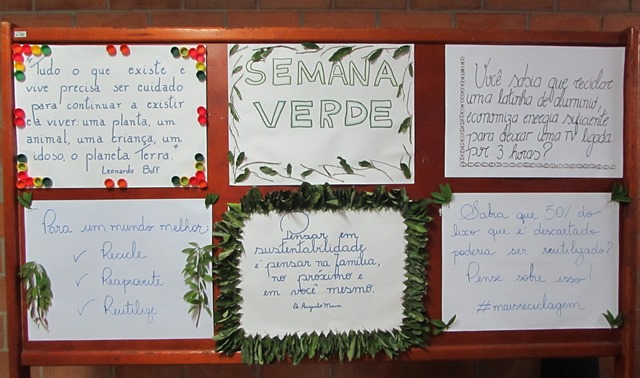 "Tudo o que existe e
vive precisa ser cuidado
para continuar a existir
e a viver: uma planta, um
animal, uma criança, um
idoso, o planeta Terra."
Leonardo Boff
SEMANA
VERDE
Você sabia que reciclar
uma latinha de alumínio,
economiza energia suficiente
para deixar uma TV ligada
por 3 horas?
Para um mundo melhor:
✓ Recicle
✓ Reaproveite
✓ Reutilize
Pensar em
sustentabilidade
é pensar na família,
no próximo e
em você mesmo.
Sabia que 50% do
lixo que é descartado
poderia ser reutilizado?
Pense sobre isso!
#maisreciclagem